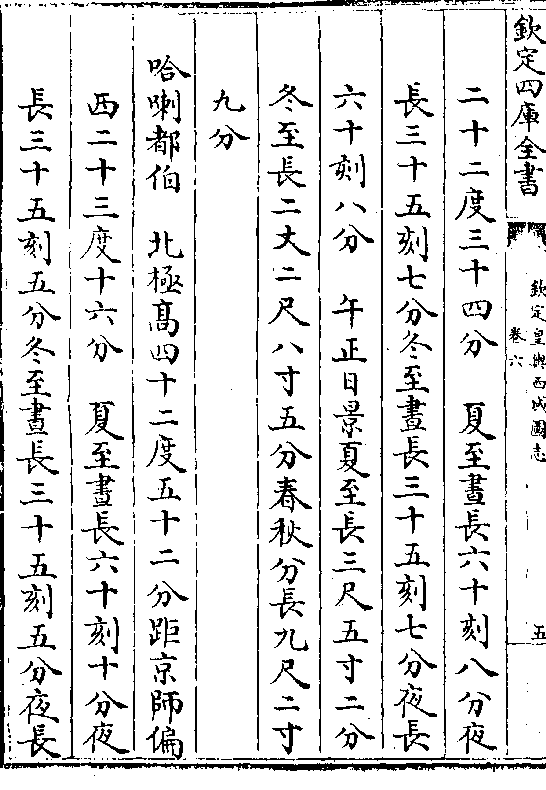 欽定四庫全書
欽定皇輿西域圖志
卷六
五
二十二度三十四分　夏至晝長六十刻八分夜
長三十五刻七分冬至晝長三十五刻七分夜長
六十刻八分　午正日景夏至長三尺五寸二分
冬至長二丈二尺八寸五分春秋分長九尺二寸
九分
哈喇都伯　北極髙四十二度五十二分距京師偏
西二十三度十六分　夏至晝長六十刻十分夜
長三十五刻五分冬至晝長三十五刻五分夜長